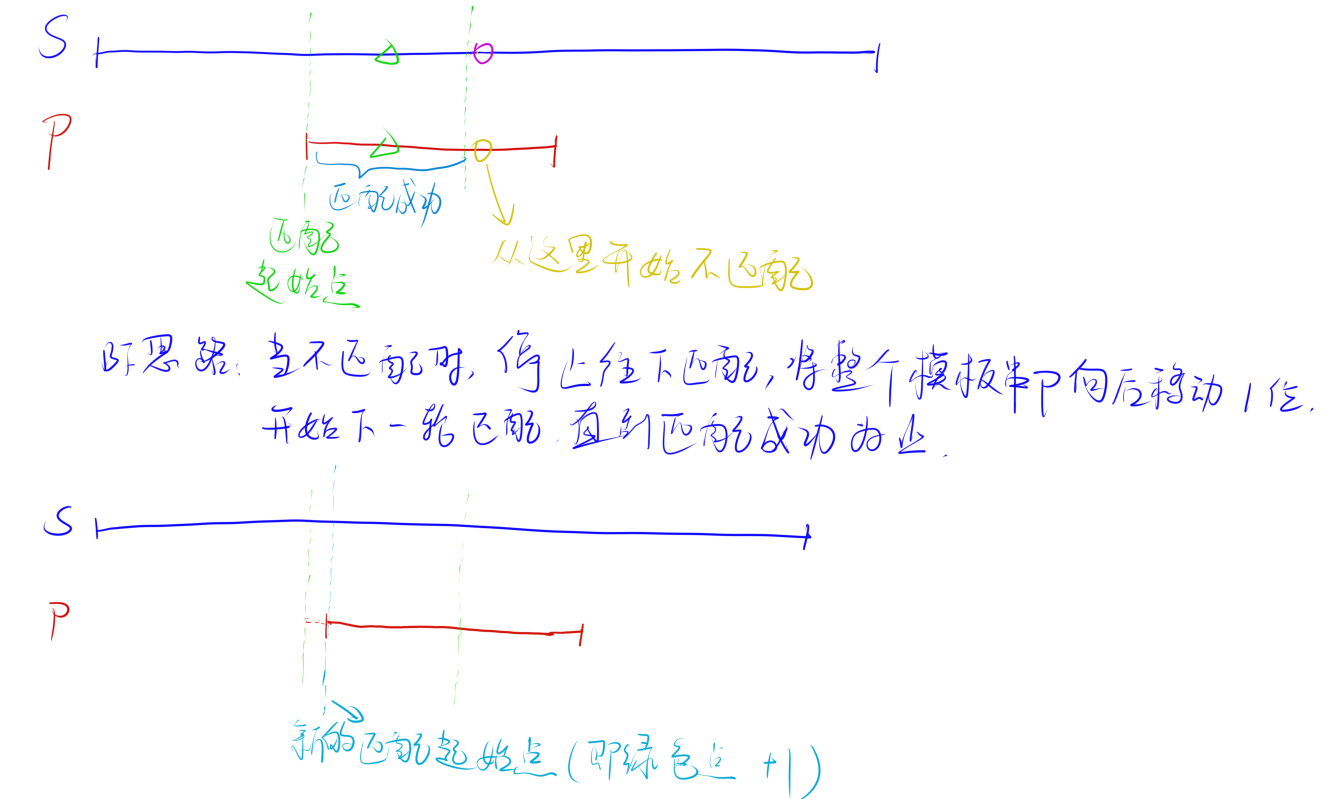 S
P
匹配成功
匹配
起始点
从这里开始不匹配
BF思路: 当不匹配时, 停止往下匹配, 将整个模板串P向后移动1位.
开始下一轮匹配. 直到匹配成功为止.
S
P
新的匹配起始点(即绿色点 +1)